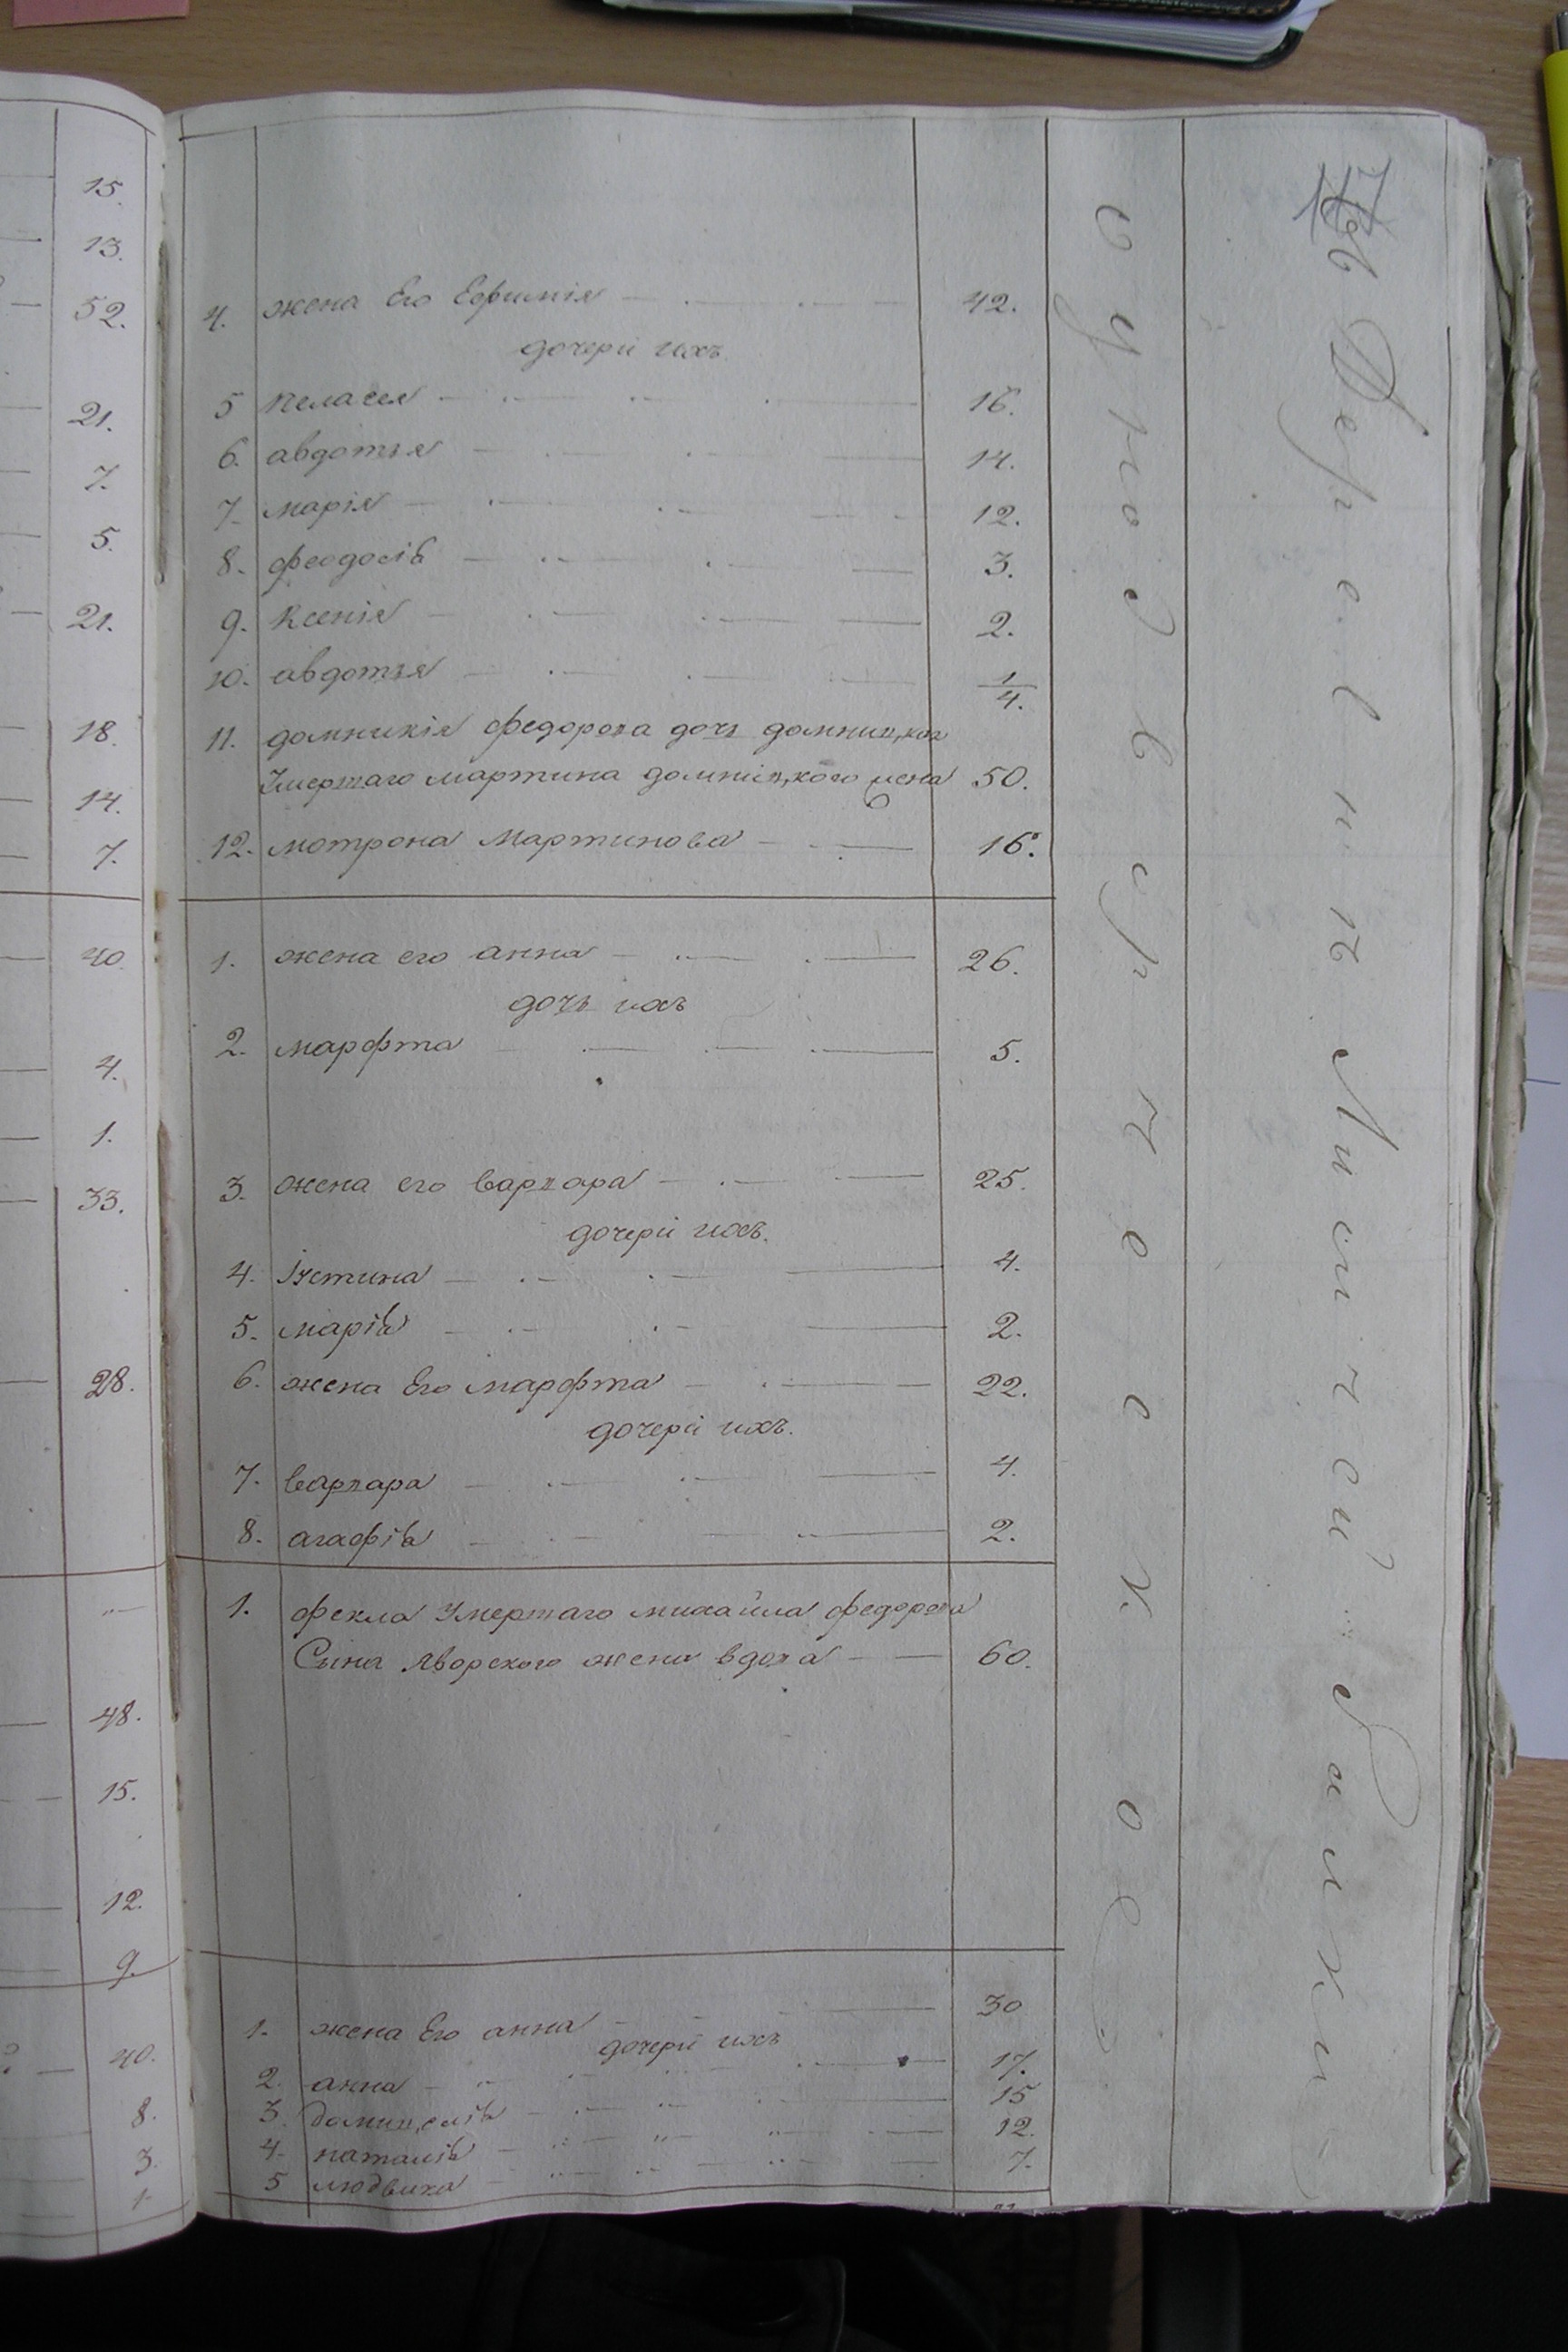 15.
13.
52.
21.
7.
5.
21.
18.
14.
7.
40
4.
1.
33.
28.
48.
15.
12.
9.
40.
8.
3.
1.
4. жена Его Ефимія 42.
дочери ихъ
5 пеласея 16.
6. авдотья 14.
7. марія 12.
8. феодосія 3.
9. Ксенія 2.
10. авдотья 1/4.
11. домникія федорова дочь
Умершаго мартина домніцкого жена 50.
12. мотрона Мартинова 16.
1. жена его анна 26.
дочь ихъ
2. марфта 5.
3. жена его варвара 25.
дочери ихъ.
4. Іустина 4.
5. марія 2.
6. жена Его марфта 22.
дочери ихъ.
7. варвара 4.
8. агафія 2.
1. фекла Умершаго михайла федорова
Сына Яворского жена вдова 60.
1. жена Его анна 30
дочери ихъ
2. анна 17.
3. 15
4. наталія 12.
5 людвика 7.